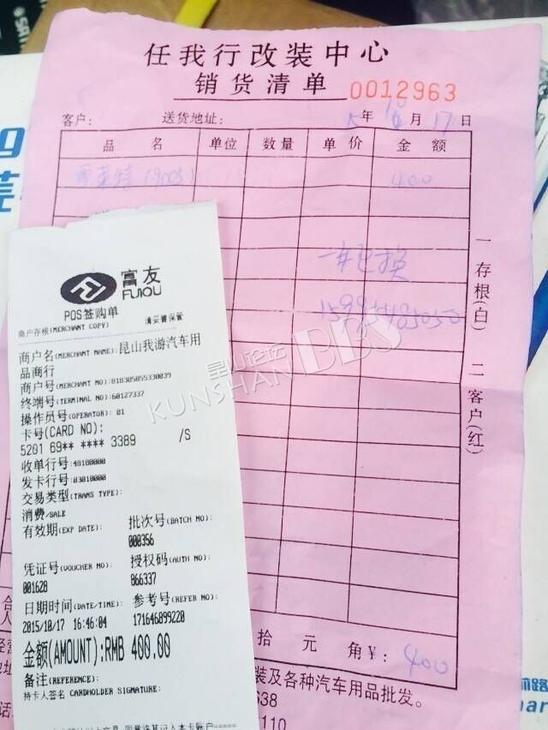 任我行改装中心
销货清单 0012963
客户: 送货地址: 5年10月17日
品名 单位 数量 单价 金额
400
一年包换
一存根(白) 二客户(红)
拾 元 角 ¥: 400
装及各种汽车用品批发。
638
110
富友
FUIOU
POS签购单
商户存根(MERCHANT COPY) 请妥善保管
商户名(MERCHANT NAME):昆山我游汽车用
品商行
商户号(MERCHANT NO):818305055330039
终端号(TERMINAL NO):60127337
操作员号(OPERATOR): 01
卡号(CARD NO):
5201 69** **** 3389 /S
收单行号:48180000
发卡行号:03010000
交易类型(TRANS TYPE):
消费/SALE
有效期(EXP DATE): 批次号(BATCH NO):
000356
凭证号(VOUCHER NO): 授权码(AUTH NO):
001628 866337
日期时间(DATE/TIME): 参考号(REFER NO):
2015/10/17 16:46:04 171646899220
金额(AMOUNT):RMB 400.00
备注(REFERENCE):
持卡人签名 CARDHOLDER SIGNATURE:
昆山论坛
KUNSHAN BBS